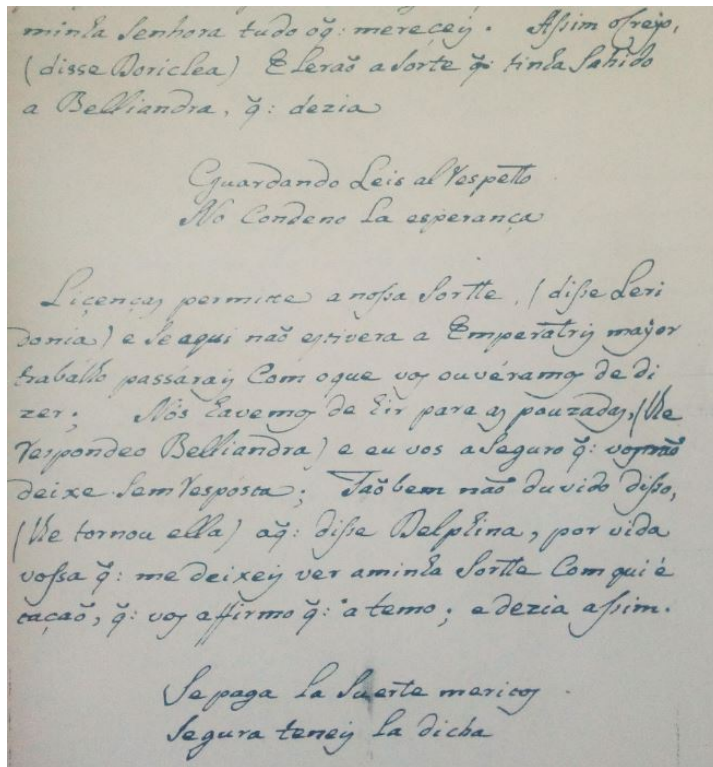 minha Senhora tudo oq̃: mereceis. Assim o creyo,
(disse Doriclea) E leraõ a sorte q̃: tinha sahido
a Belliandra, q̃: dezia
Guardando Leis al respetto
No Condeno la esperança
Liçenças permitte a nossa sortte, (disse Leri
donia) e se aqui naõ estivera a Emperatris mayor
trabalho passárais Com o que vos ouvéramos de di
zer; Nós havemos de hir para as pouzadas, (lhe
respondeo Belliandra) e eu vos aseguro q̃: vos naõ
deixe sem resposta; Taõbem naõ duvido disso,
(lhe tornou ella) aq̃: disse Delphina, por vida
vossa q̃: me deixeis ver a minha sortte Com qui é
taçaõ, q̃: vos affirmo q̃: a temo; e dezia assim.
Se paga la suerte meritos
Segura teneis la dicha